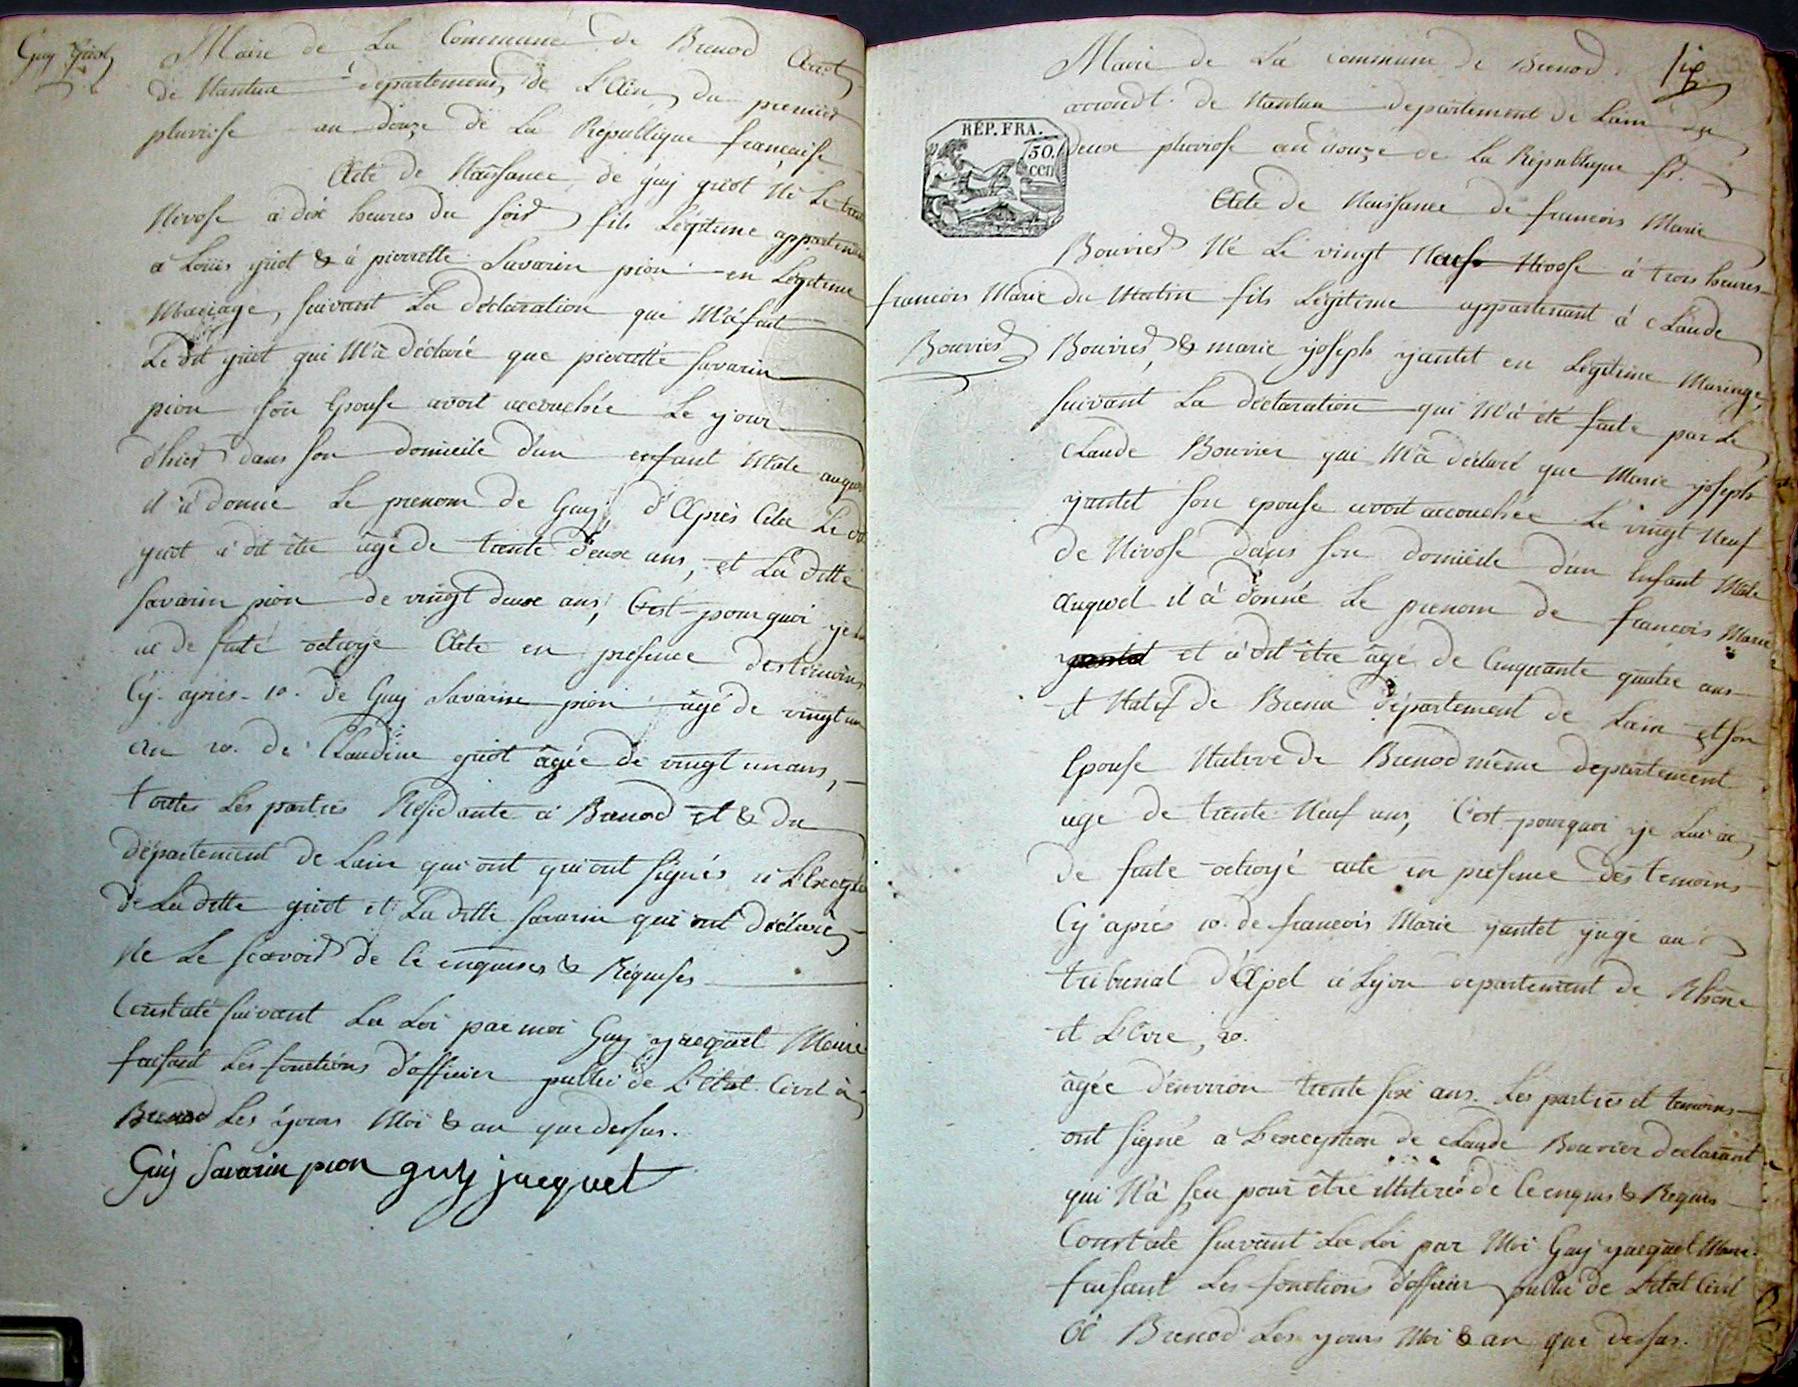 Guy Guiot
Maire de La Commune de Brenod Arrt
de Nantua département de L'Ain du premier
pluviose an douze de La République française
Acte de Naissance de guy guiot Né Le trente
Nivose à dix heures du soir fils Légitime appartenant
a Louis guiot & à pierrette Savarin pion en Légitime
Mariage, suivant La déclaration qui M'a fait
Le dit guiot qui M'a déclaré que pierrette savarin
pion son Epouse avoit accouchée Le jour
d'hier dans son domicile d'un enfant Male auquel
il a donné Le prenom de Guy, d'Après Cela Le dt
guiot a dit être âgé de trente deux ans, et La ditte
savarin pion de vingt deux ans, C'est pourquoi je
ai de suite octroye Acte en presence des temoins
Cy après 1o. de Guy Savarin pion âgé de vingt un
an 2o. de Claudine guiot âgée de vingt un ans,
toutes Les parties Residante à Brenod et & du
département de Lain qui ont qui ont signés à L'Exception
de La ditte guiot et La ditte savarin qui ont déclaré
Ne Le scavoir de Ce enquises & Réquises
Constaté suivant La Loi par moi Guy jacquet Maire
faisant Les fonctions d'officier public de L'Etat Civil à
Brenod Les jours Moi & an que dessus.
Guy Savarin pion guy jacquet
Maire de La commune de Brenod
six
arrondt. de Nantua departement de Lain du
deux pluviose an douze de La République fr.
RÉP. FRA.
50.
cen
Acte de Naissance de francois Marie
Bouvier Né Le vingt Neuf Nivose à trois heures
francois Marie
Bouvier
du Matin fils Légitime appartenant à Claude
Bouvier, & marie joseph jantet en Légitime Mariage,
suivant La declaration qui M'à été faite par Le
Claude Bouvier qui M'a déclaré que Marie joseph
jantet son epouse avoit accouchée Le vingt Neuf
de Nivose dans son domicile d'un Enfant Male
Auquel il à donné Le prenom de francois Marie
et à dit être âgé de Cinquante quatre ans
et Natif de département de Lain et son
Epouse Native de Brenod même departement
age de trente Neuf ans, C'est pourquoi je Lui ai
de suite octroyé acte en presence des temoins
Cy après 1o. de francois Marie jantet juge au
tribunal d'Apel à Lyon departement de Rhône
et 2o.
âgée d'environ trente six ans. Les parties et temoins
ont signé a L'exception de Claude Bouvier declarant
qui N'à sçu pour être illiteré de Ce enquis & Requis
Constate suivant La Loi par Moi Guy jacquet Maire
faisant Les fonctions d'officier public de L'etat Civil
à Brenod Les jours Moi & an que dessus.